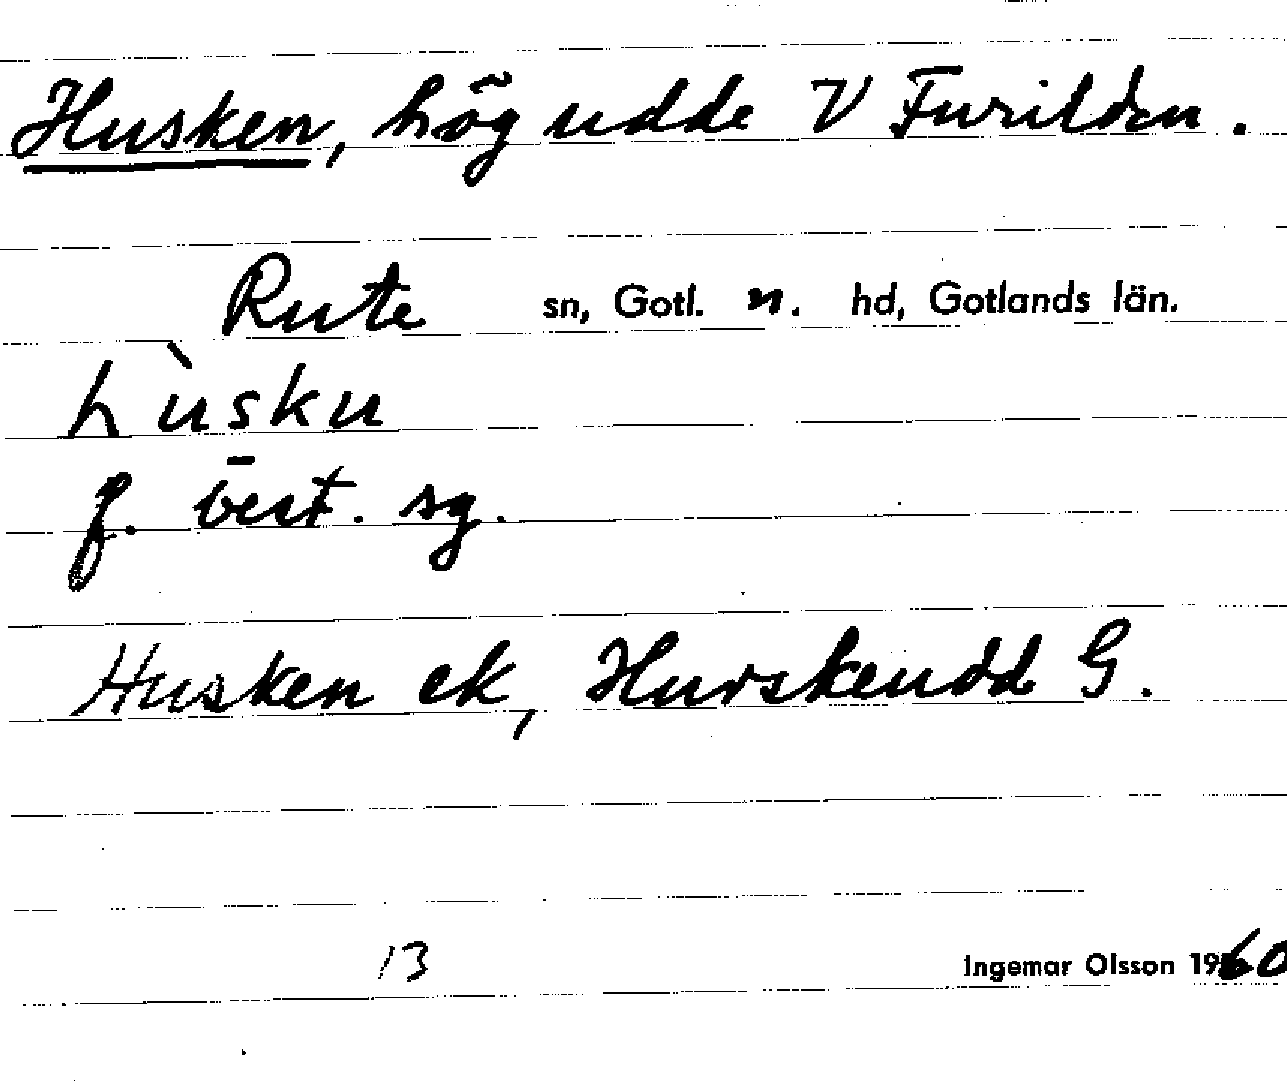 Husken, hög udde V Furilden.
Rute sn, Gotl. n. hd, Gotlands län.
hùsku
f. best. sg.
Husken ek, Hurskeudd G.
13
Ingemar Olsson 1960